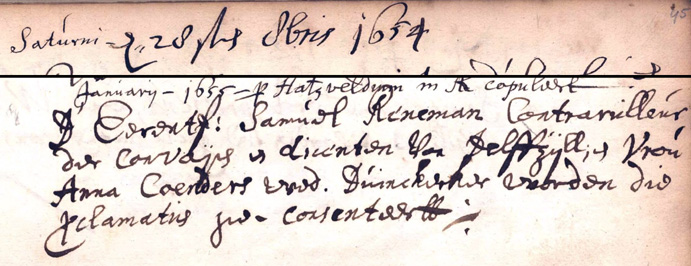 Saturni = 28 8bris 1654
Januarij - 1655 = p Hatzveldium in copuleert
D Eerentf: Samuel Reneman Contrarulleur
der Convoyes Licenten van Delffzijll, Vrou
Anna Coenders wed. Duirckerker worden die
pclamatis geconsenteert